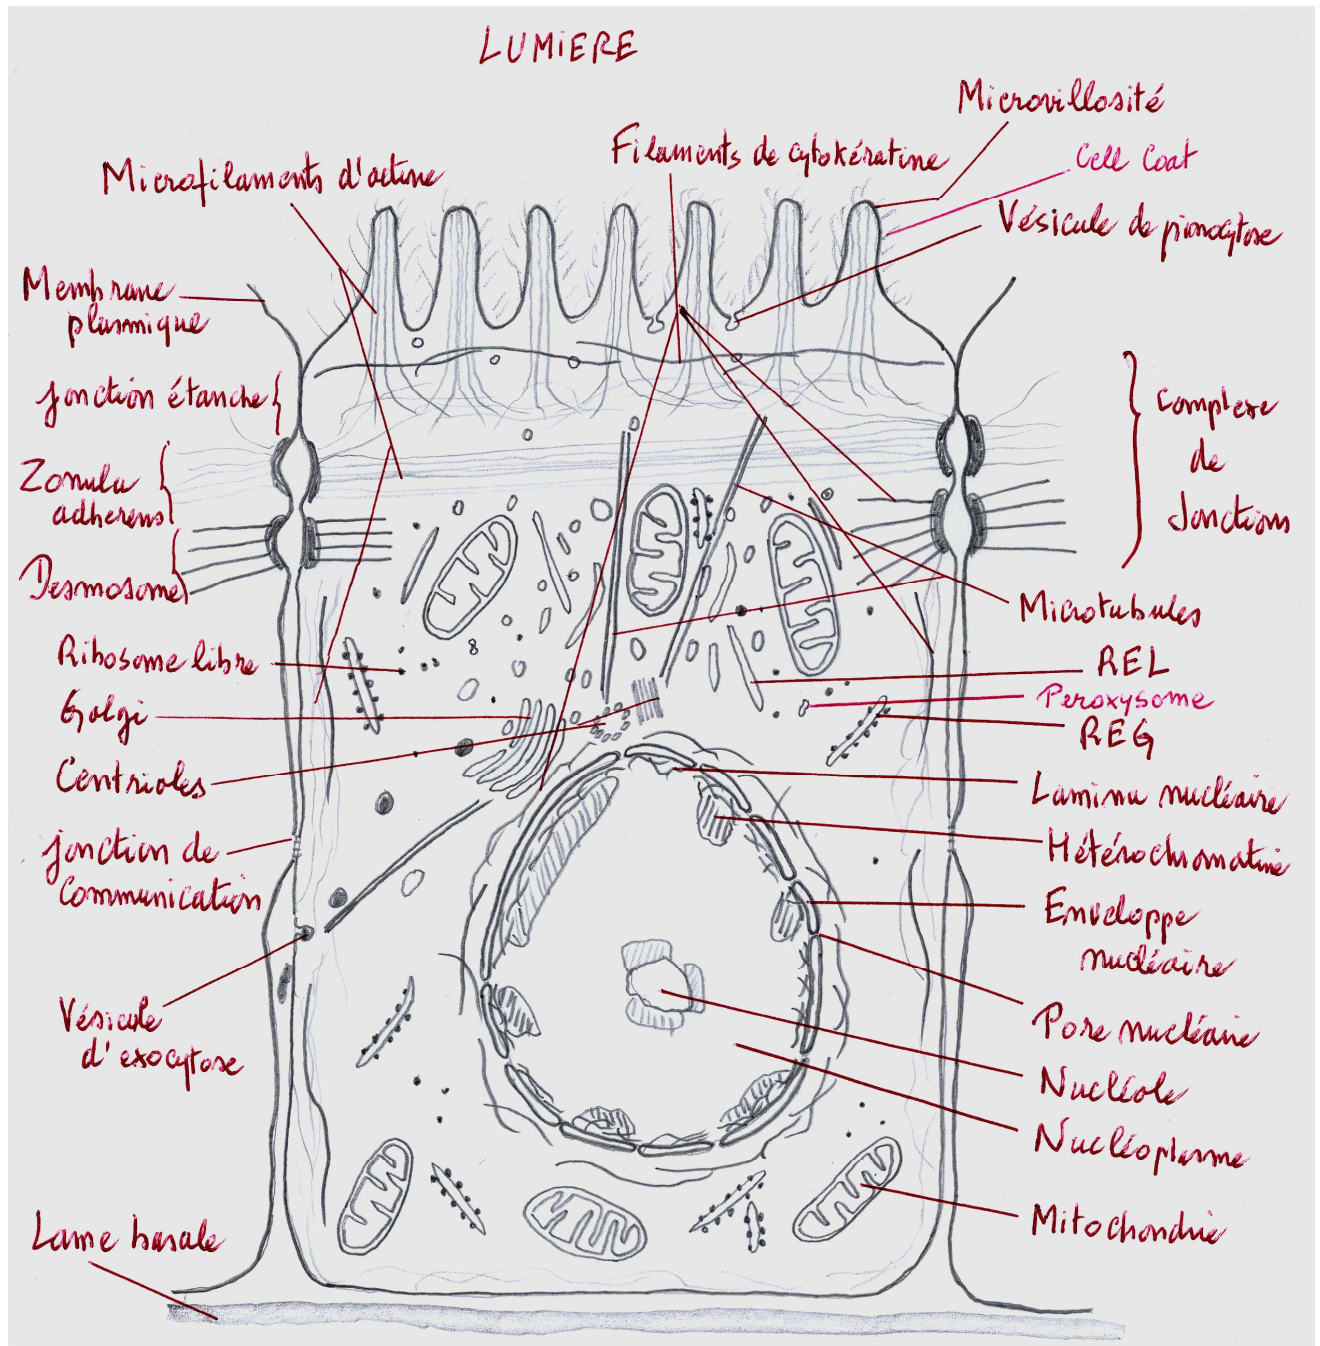 LUMIERE
Microvillosité
Filaments de cytokératine
Cell Coat
Microfilaments d'actine
Vésicule de pionocytose
Membrane
plasmique
Jonction étanche
Complexe
de
Jonctions
Zonula
adherens
Desmosome
Microtubules
Ribosome libre
REL
Peroxysome
Golgi
REG
Centrioles
Lamina nucléaire
Jonction de
Communication
Hétérochromatine
Enveloppe
nucléaire
Vésicule
d'exocytose
Pore nucléaire
Nucléole
Nucléoplasme
Mitochondrie
Lame basale